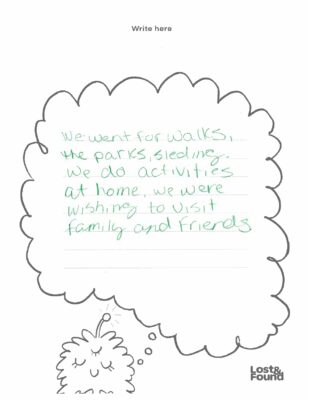 Write here
We went for walks,
the parks, sleding.
We do activities
at home. we were
wishing to visit
family and friends
Lost&
Found